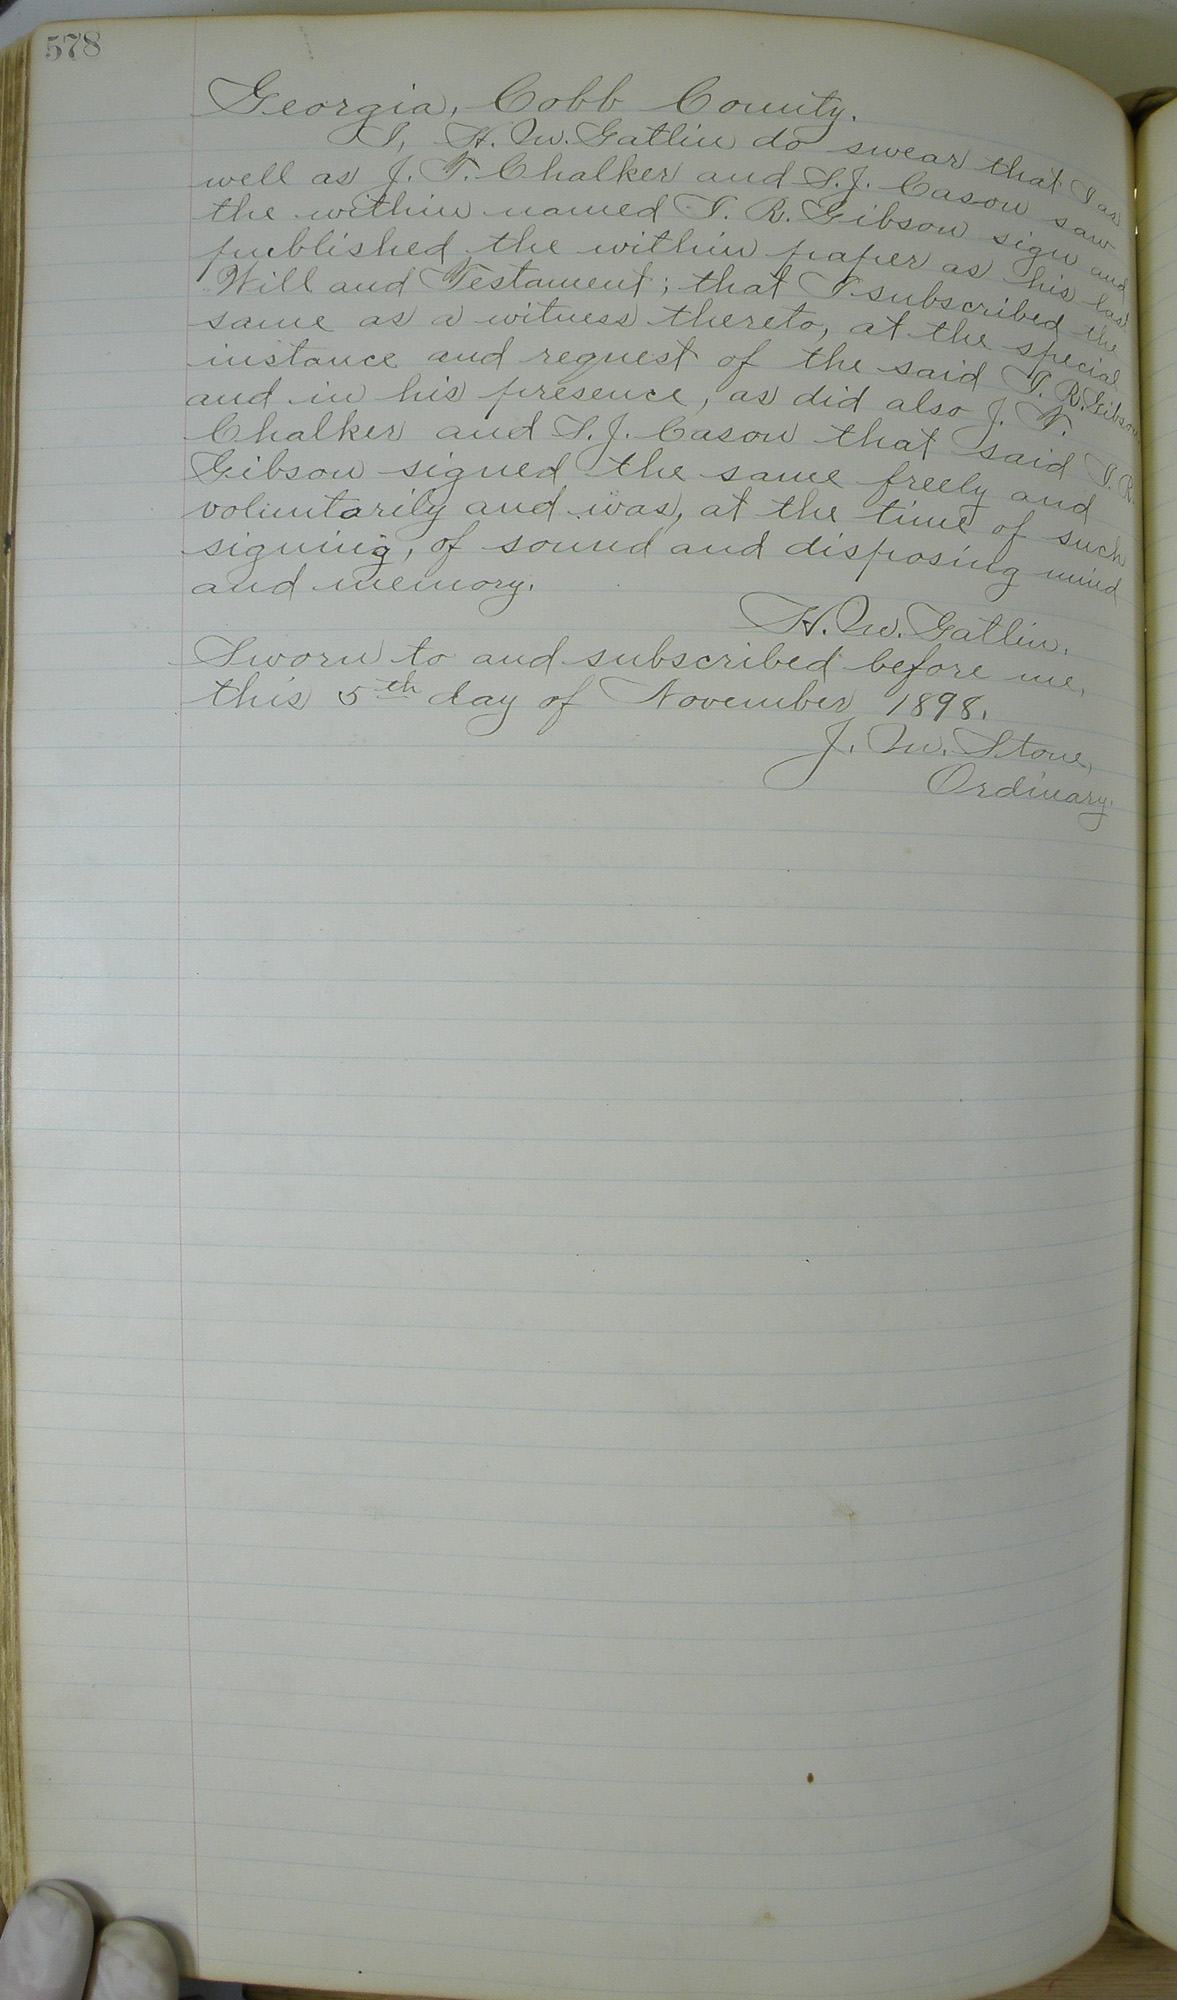 578
Georgia, Cobb County.
I, H. M. Gatlin do swear that I as
well as J. T. Chalker and S. J. Cason saw
the within named T. R. Gibson sign and
published the within paper as his last
Will and Testament; that I subscribed the
same as a witness thereto, at the special
instance and request of the said T. R. Gibson
and in his presence, as did also J. T.
Chalker and S. J. Cason that said T. R.
Gibson signed the same freely and
voluntarily and was, at the time of such
signing, of sound and disposing mind
and memory.
H. M. Gatlin.
Sworn to and subscribed before me,
this 5th day of November 1898.
J. M. Stone,
Ordinary.